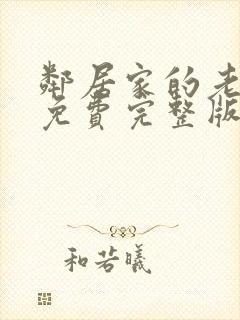 鄰居家的老
免費完整版
和若曦